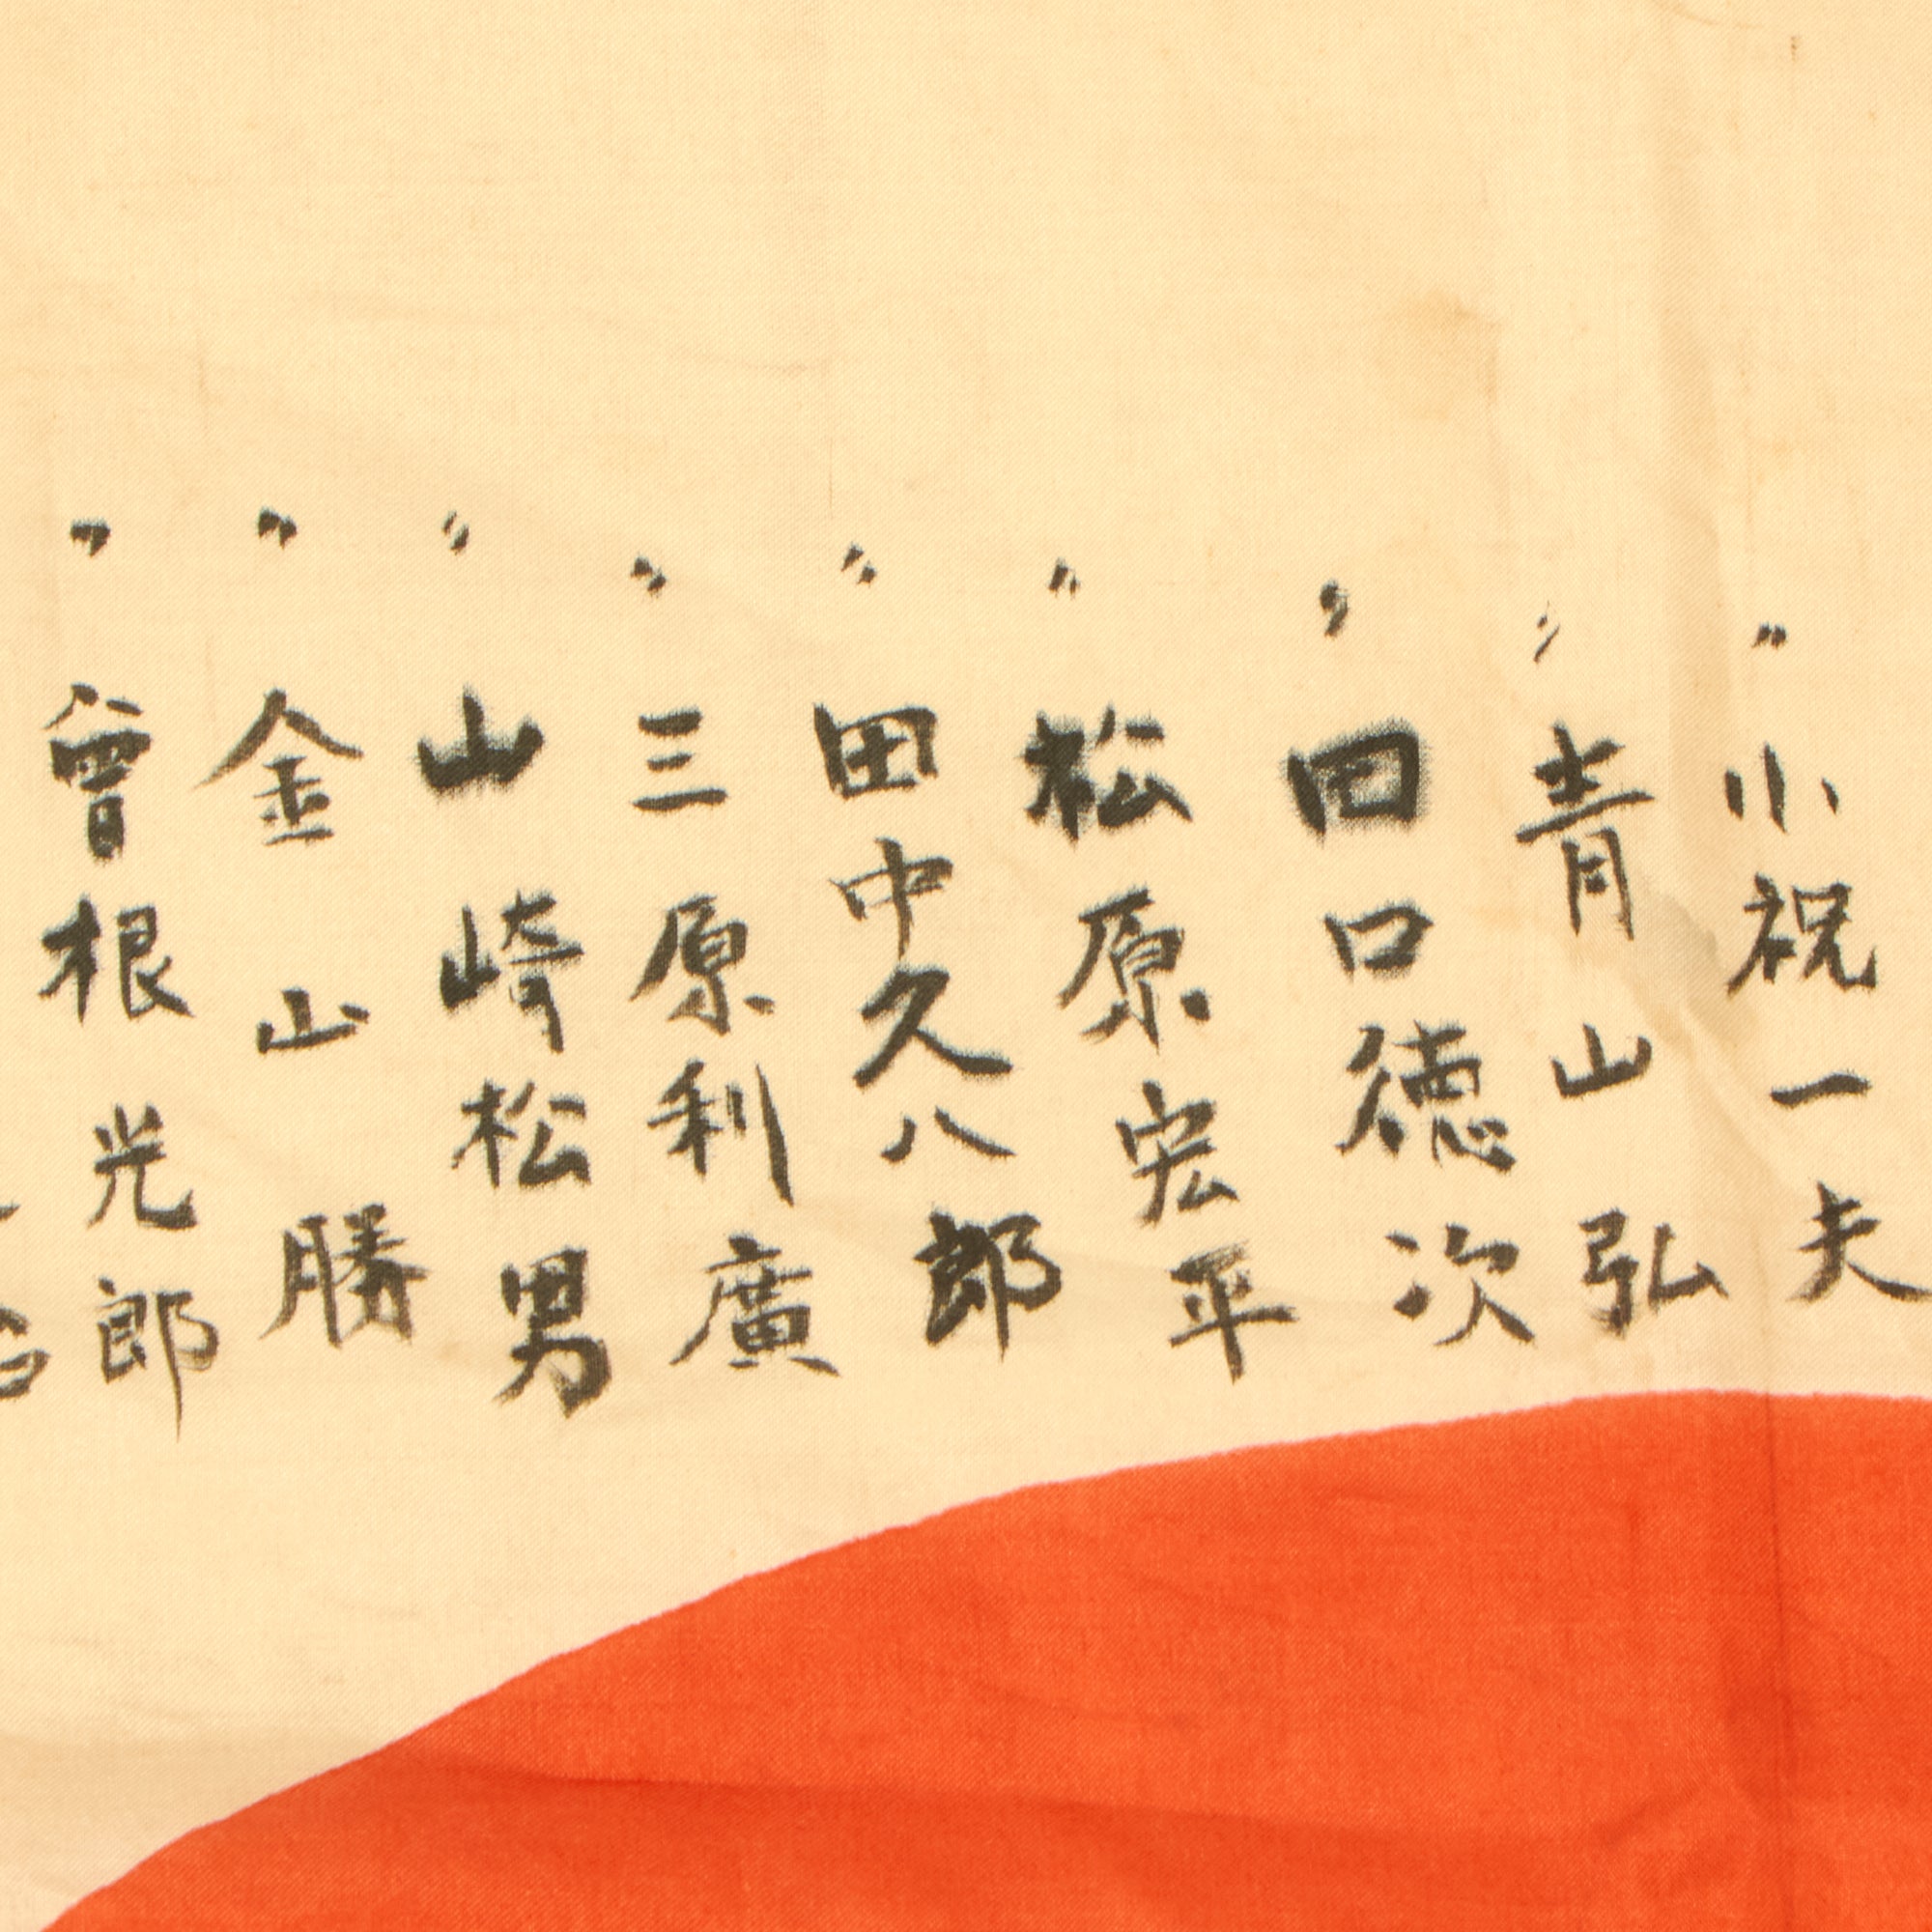 〃 小祝一夫
〃 青山弘
〃 田口徳次
〃 松原宏平
〃 田中久八郎
〃 三原利廣
〃 山崎松男
〃 金山勝
〃 曾根光郎